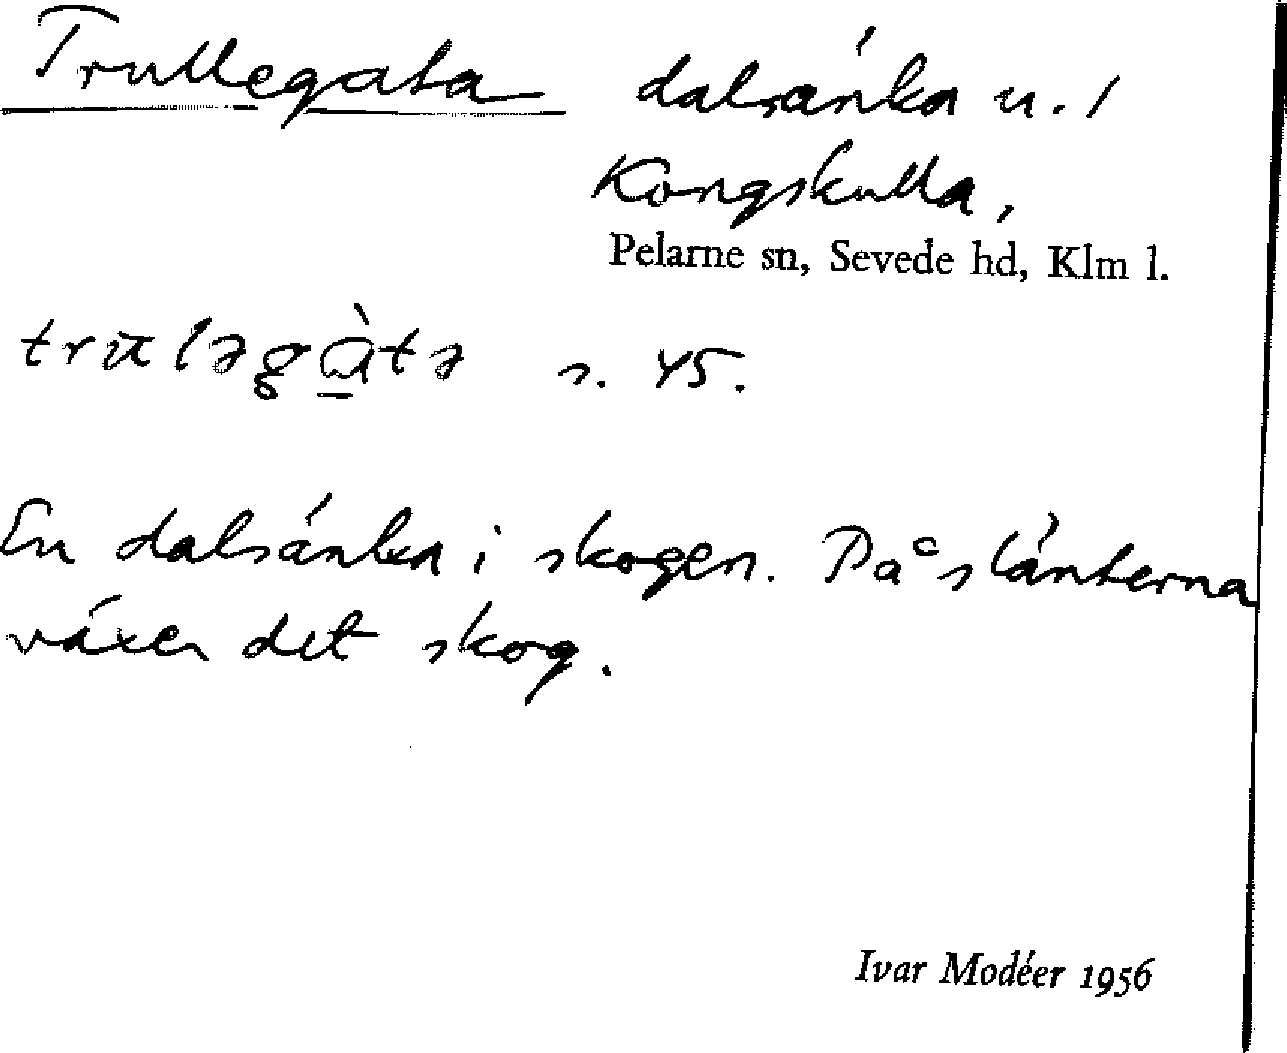 Trullegata dalsänka u. 1
Kongskulla,
Pelarne sn, Sevede hd, Klm l.
s. 45.
En dalsänka i skogen. På slänterna
växer det skog.
Ivar Modéer 1956